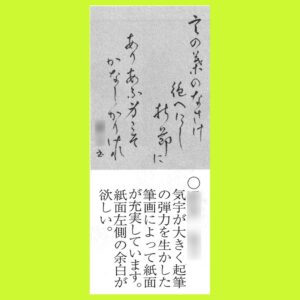 言の葉のなさけ
絶へにし
折節に
ありあふ身こそ
かなしかりけれ
○
気宇が大きく起筆
の弾力を生かした
筆画によって紙面
が充実しています。
紙面左側の余白が
欲しい。